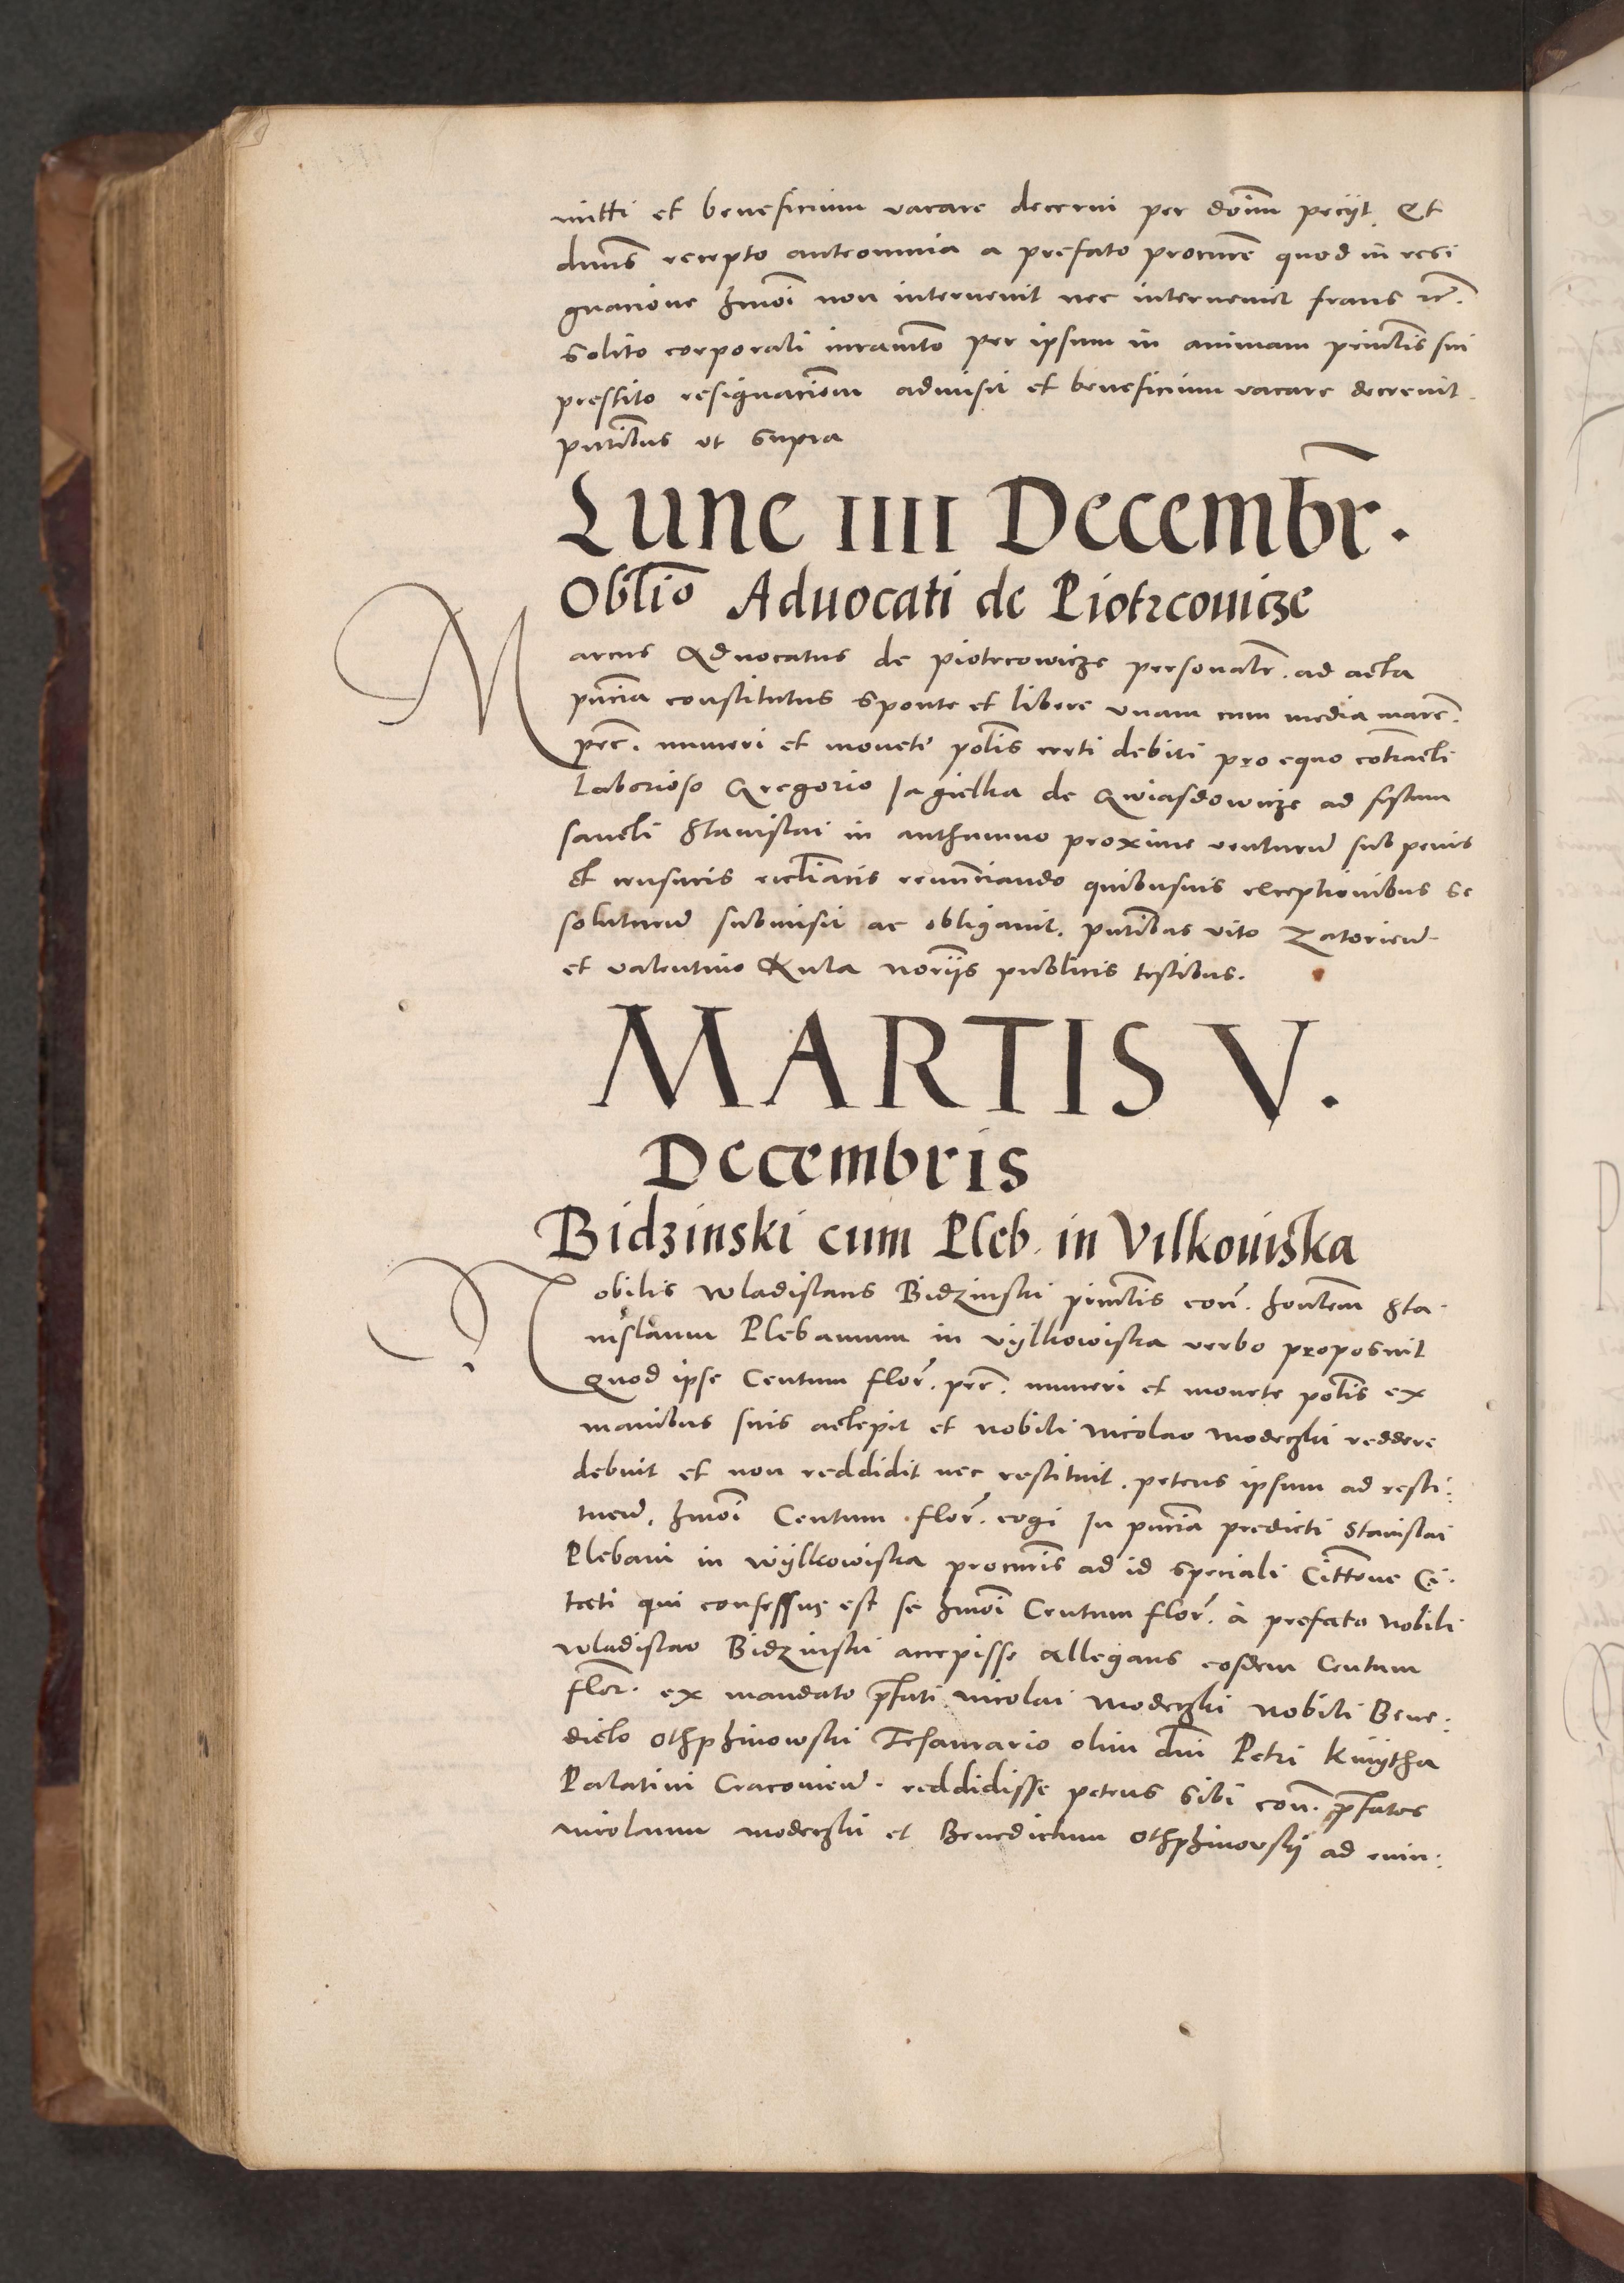 mitti et beneficium vacare decerni per doīm peciit. Et
dnūs recepto anteomnia a prefato procūre quod in resi
gnacione hm̄oi non intervenit nec interveniet fraus etc̄.
solito corporali iuramto per ipsum in animam principlis sui
prestito resignacioēm admisit et beneficium vacare decrevit.
pn̄tibus ut supra
Lune IIII Decembr̄.
Oblīo Aduocati de Piotrcouicze
Marcus Advocatus de piotrcowicze personalr̄. ad acta
pn̄cia constitutus sponte et libere vnam cum media marc̄.
pec̄. numeri et monete polīs certi debiti pro equo cōtracti
Laborioso Gregorio Jagielka de Gwiasdowicze ad festum
sancti Stanislai in authumno proxime venturū sub penis
et censuris ecclīacis renunciando quibusuis exceptionibus se
soluturū submisit ac obligauit. pn̄tibus vito Zatoricū.
et valentino Kula norīis publicis testibus.
MARTIS V.
Decembris
Bidzinski cum Pleb. in Vilkouiska
Nobilis Wladislaus Bidzinski princlis con̄. honlem Sta-
nislaum Plebanum in vylkowiska verbo proposuit
Quod ipse Centum flor̄. pec̄. numeri et monete polīs ex
manibus suis accepit et nobili nicolao modeczki reddere
debuit et non reddidit nec restituit. petens ipsum ad resti:
tuen̄d. hm̄oi Centum flor̄. cogi In pn̄cia predicti Stanislai
Plebani in wylkowiska procūris ad id speciali Cittone Ci-
tati qui confessus est se hm̄oi Centum flor̄. à prefato Nobili
wladislao Bidzinski accepisse Allegans eosdem Centum
flor̄. ex mandato p̄fati nicolai modeczki nobili Bene:
dicto Othphinowski Tesaurario olim dni Petri Kmytha
Palatini Cracovien̄. reddidisse petens sibi con̄. p̄fatos
nicolaum modeczki et Benedictum Othphinovskÿ ad euin: